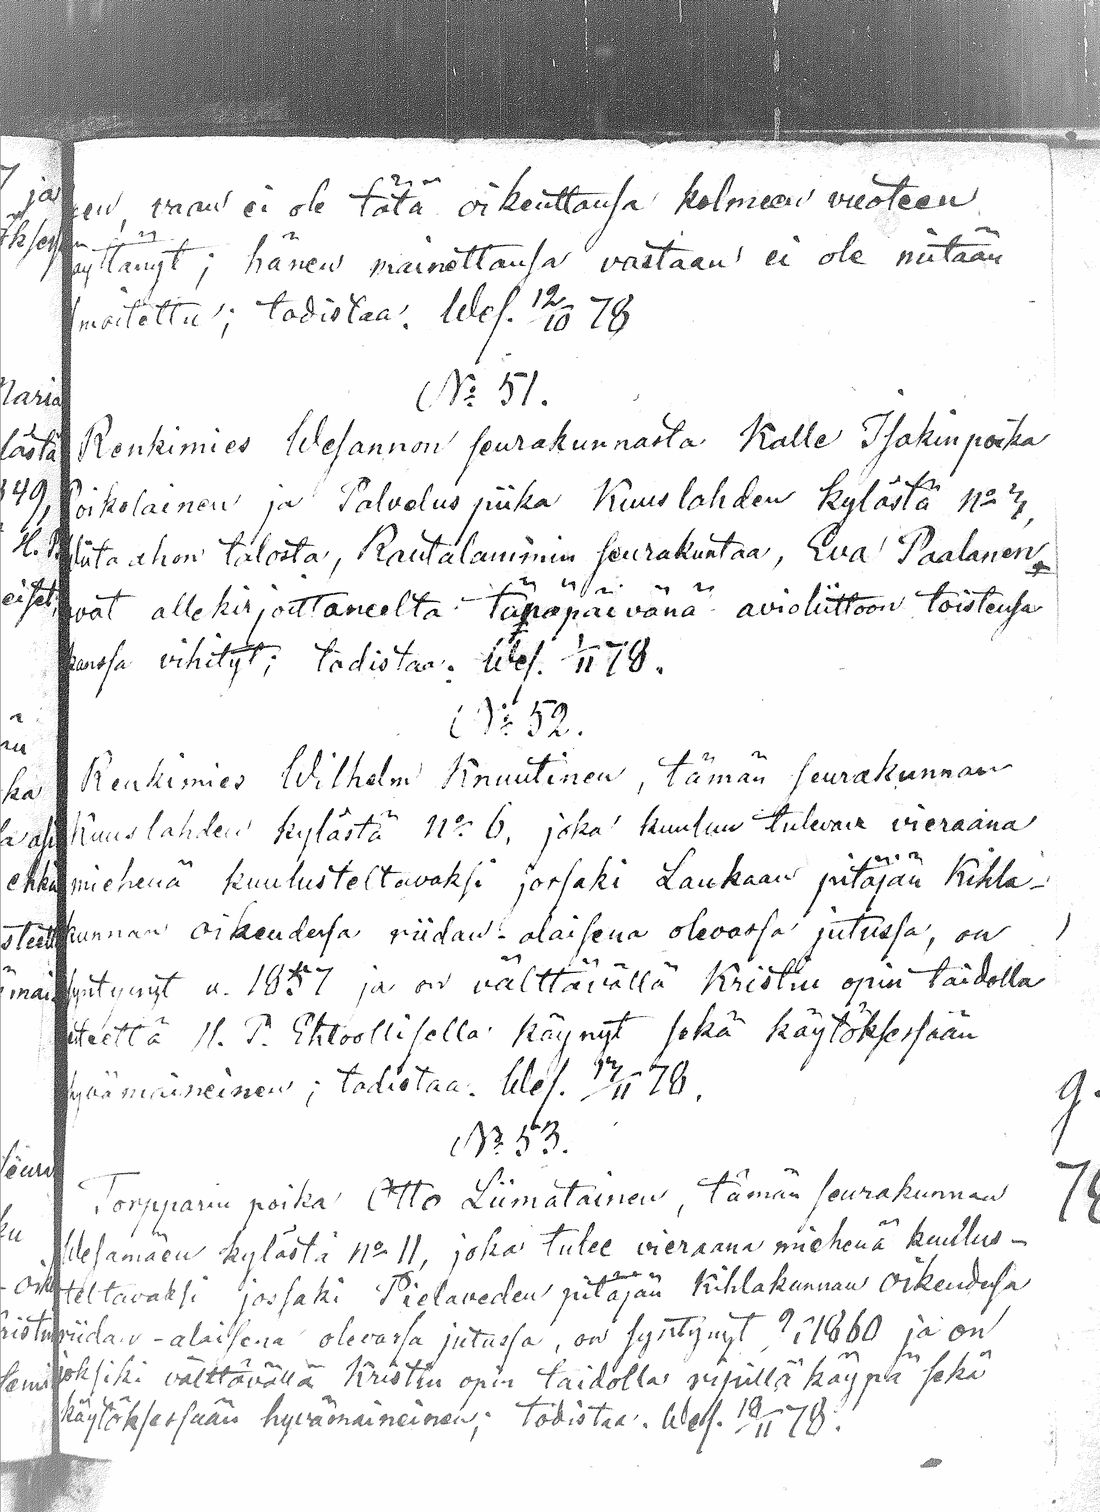 nen, vaan ei ole tätä oikeuttansa kolmeen vuoteen
käyttänyt; hänen mainettansa vastaan ei ole mitään
moitettu; todistaa. Wes. 12/10 78
No 51.
Renkimies Wesannon seurakunnasta Kalle Isakinpoika
Poikolainen ja Palvelus piika Kuuslahden kylästä No 7,
ahon talosta, Rautalammin seurakuntaa, Eva Paalanen,
ovat allekirjoittaneelta tänäpäivänä avioliittoon toistensa
kanssa vihityt; todistaa. Wes. 1/11 78.
No 52.
Renkimies Wilhelm Knuutinen, tämän seurakunnan
Kuuslahden kylästä No 6, joka kuuluu tulevan vieraana
miehenä kuulusteltavaksi jossaki Laukaan pitäjän Kihla-
kunnan oikeudessa riidan-alaisena olevassa jutussa, on
syntynyt v. 1857 ja on välttävällä Kristin opin taidolla
itsettä H. P. Ehtoollisella käynyt sekä käytöksessään
hyvämaineinen; todistaa. Wes. 17/11 78.
No 53.
Torpparin poika Otto Liimatainen, tämän seurakunnan
Wesamäen kylästä No 11, joka tulee vieraana miehenä kuulus-
teltavaksi jossaki Pielaveden pitäjän Kihlakunnan Oikeudessa
riidan-alaisena olevassa jutussa, on syntynyt 1860 ja on
joksiki välttävällä Kristin opin taidolla ripillä käypä sekä
käytöksessään hyvämaineinen; todistaa. Wes. 18/11 78.